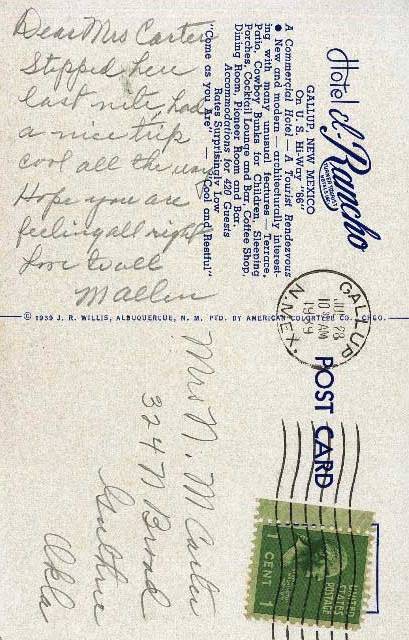 Dear Mrs Carter
Stopped here
last nite, had
a nice trip
cool all the way
Hope you are
feeling all right
Love to all
Hotel El Rancho
GALLUP, NEW MEXICO
On U. S. Hi-Way "66"
A Commercial Hotel — A Tourist Rendezvous
● New and modern — architecturally interest-
ing with many unusual features — Terrace,
Patio, Cowboy Bunks for Children, Sleeping
Porches, Cocktail Lounge and Bar, Coffee Shop,
Dining Room, Pioneer Room and Bar
Accommodations for 420 Guests
Rates Surprisingly Low
"Come as You Are" — "Cool and Restful"
© 1939 J. R. WILLIS, ALBUQUERQUE, N. M. PTD. BY AMERICAN COLORTYPE CO. CHGO.
GALLUP
28
10 AM
1939
N. MEX.
POST CARD
Mrs N. M Carter
324 N Broad
Guthrie
Okla
UNITED
STATES
POSTAGE
1 CENT 1